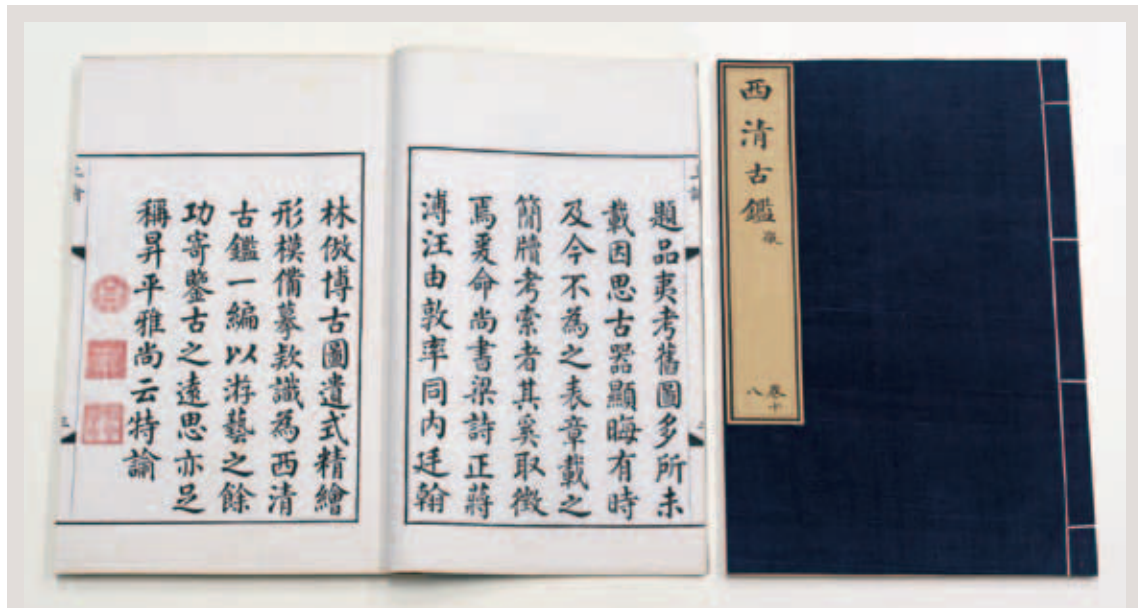 題品夷考舊圖多所未
載因思古器顯晦有時
及今不為之表章載之
簡牘考索者其奚取徵
焉爰命尚書梁詩正蔣
溥汪由敦率同內廷翰
林倣博古圖遺式精繪
形模備摹款識為西清
古鑑一編以游藝之餘
功寄鑒古之遠思亦足
稱昇平雅尚云特諭
西清古鑑
卷十
八